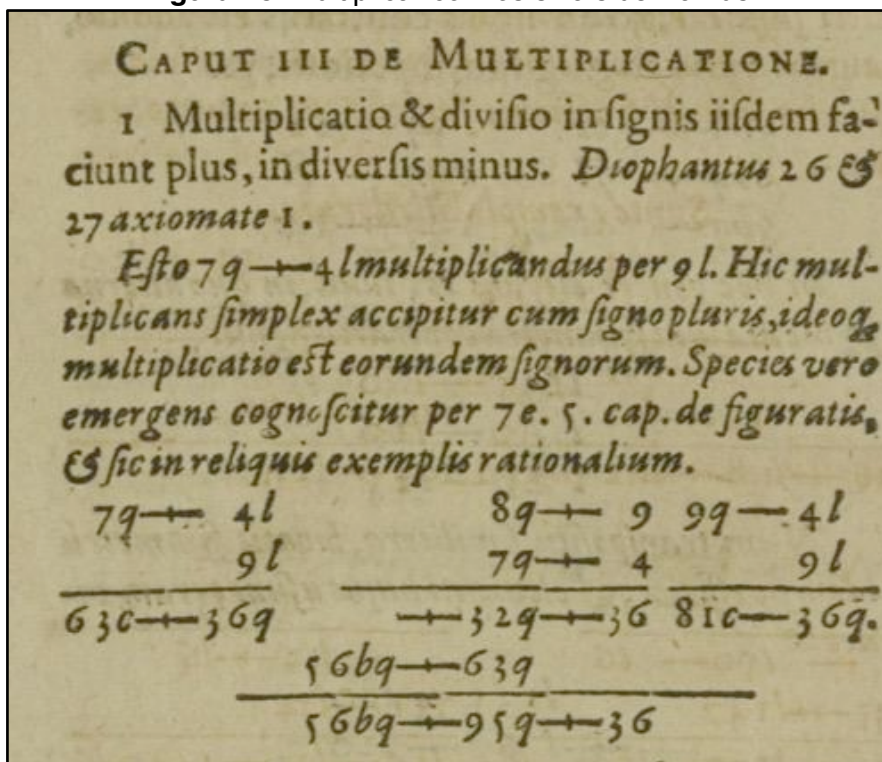 CAPUT III DE MULTIPLICATIONE.
1 Multiplicatio & divisio in signis iisdem fa-
ciunt plus, in diversis minus. Diophantus 26 &
27 axiomate 1.
Esto 7q + 4l multiplicandus per 9l. Hic mul-
tiplicans simplex accipitur cum signo pluris, ideoq,
multiplicatio est eorundem signorum. Species vero
emergens cognoscitur per 7 e. 5. cap. de figuratis,
& sic in reliquis exemplis rationalium.
7q + 4l 8q + 9 9q — 4l
9l 7q + 4 9l
63c + 36q + 32q + 36 81c — 36q.
56bq + 63q
56bq + 95q + 36